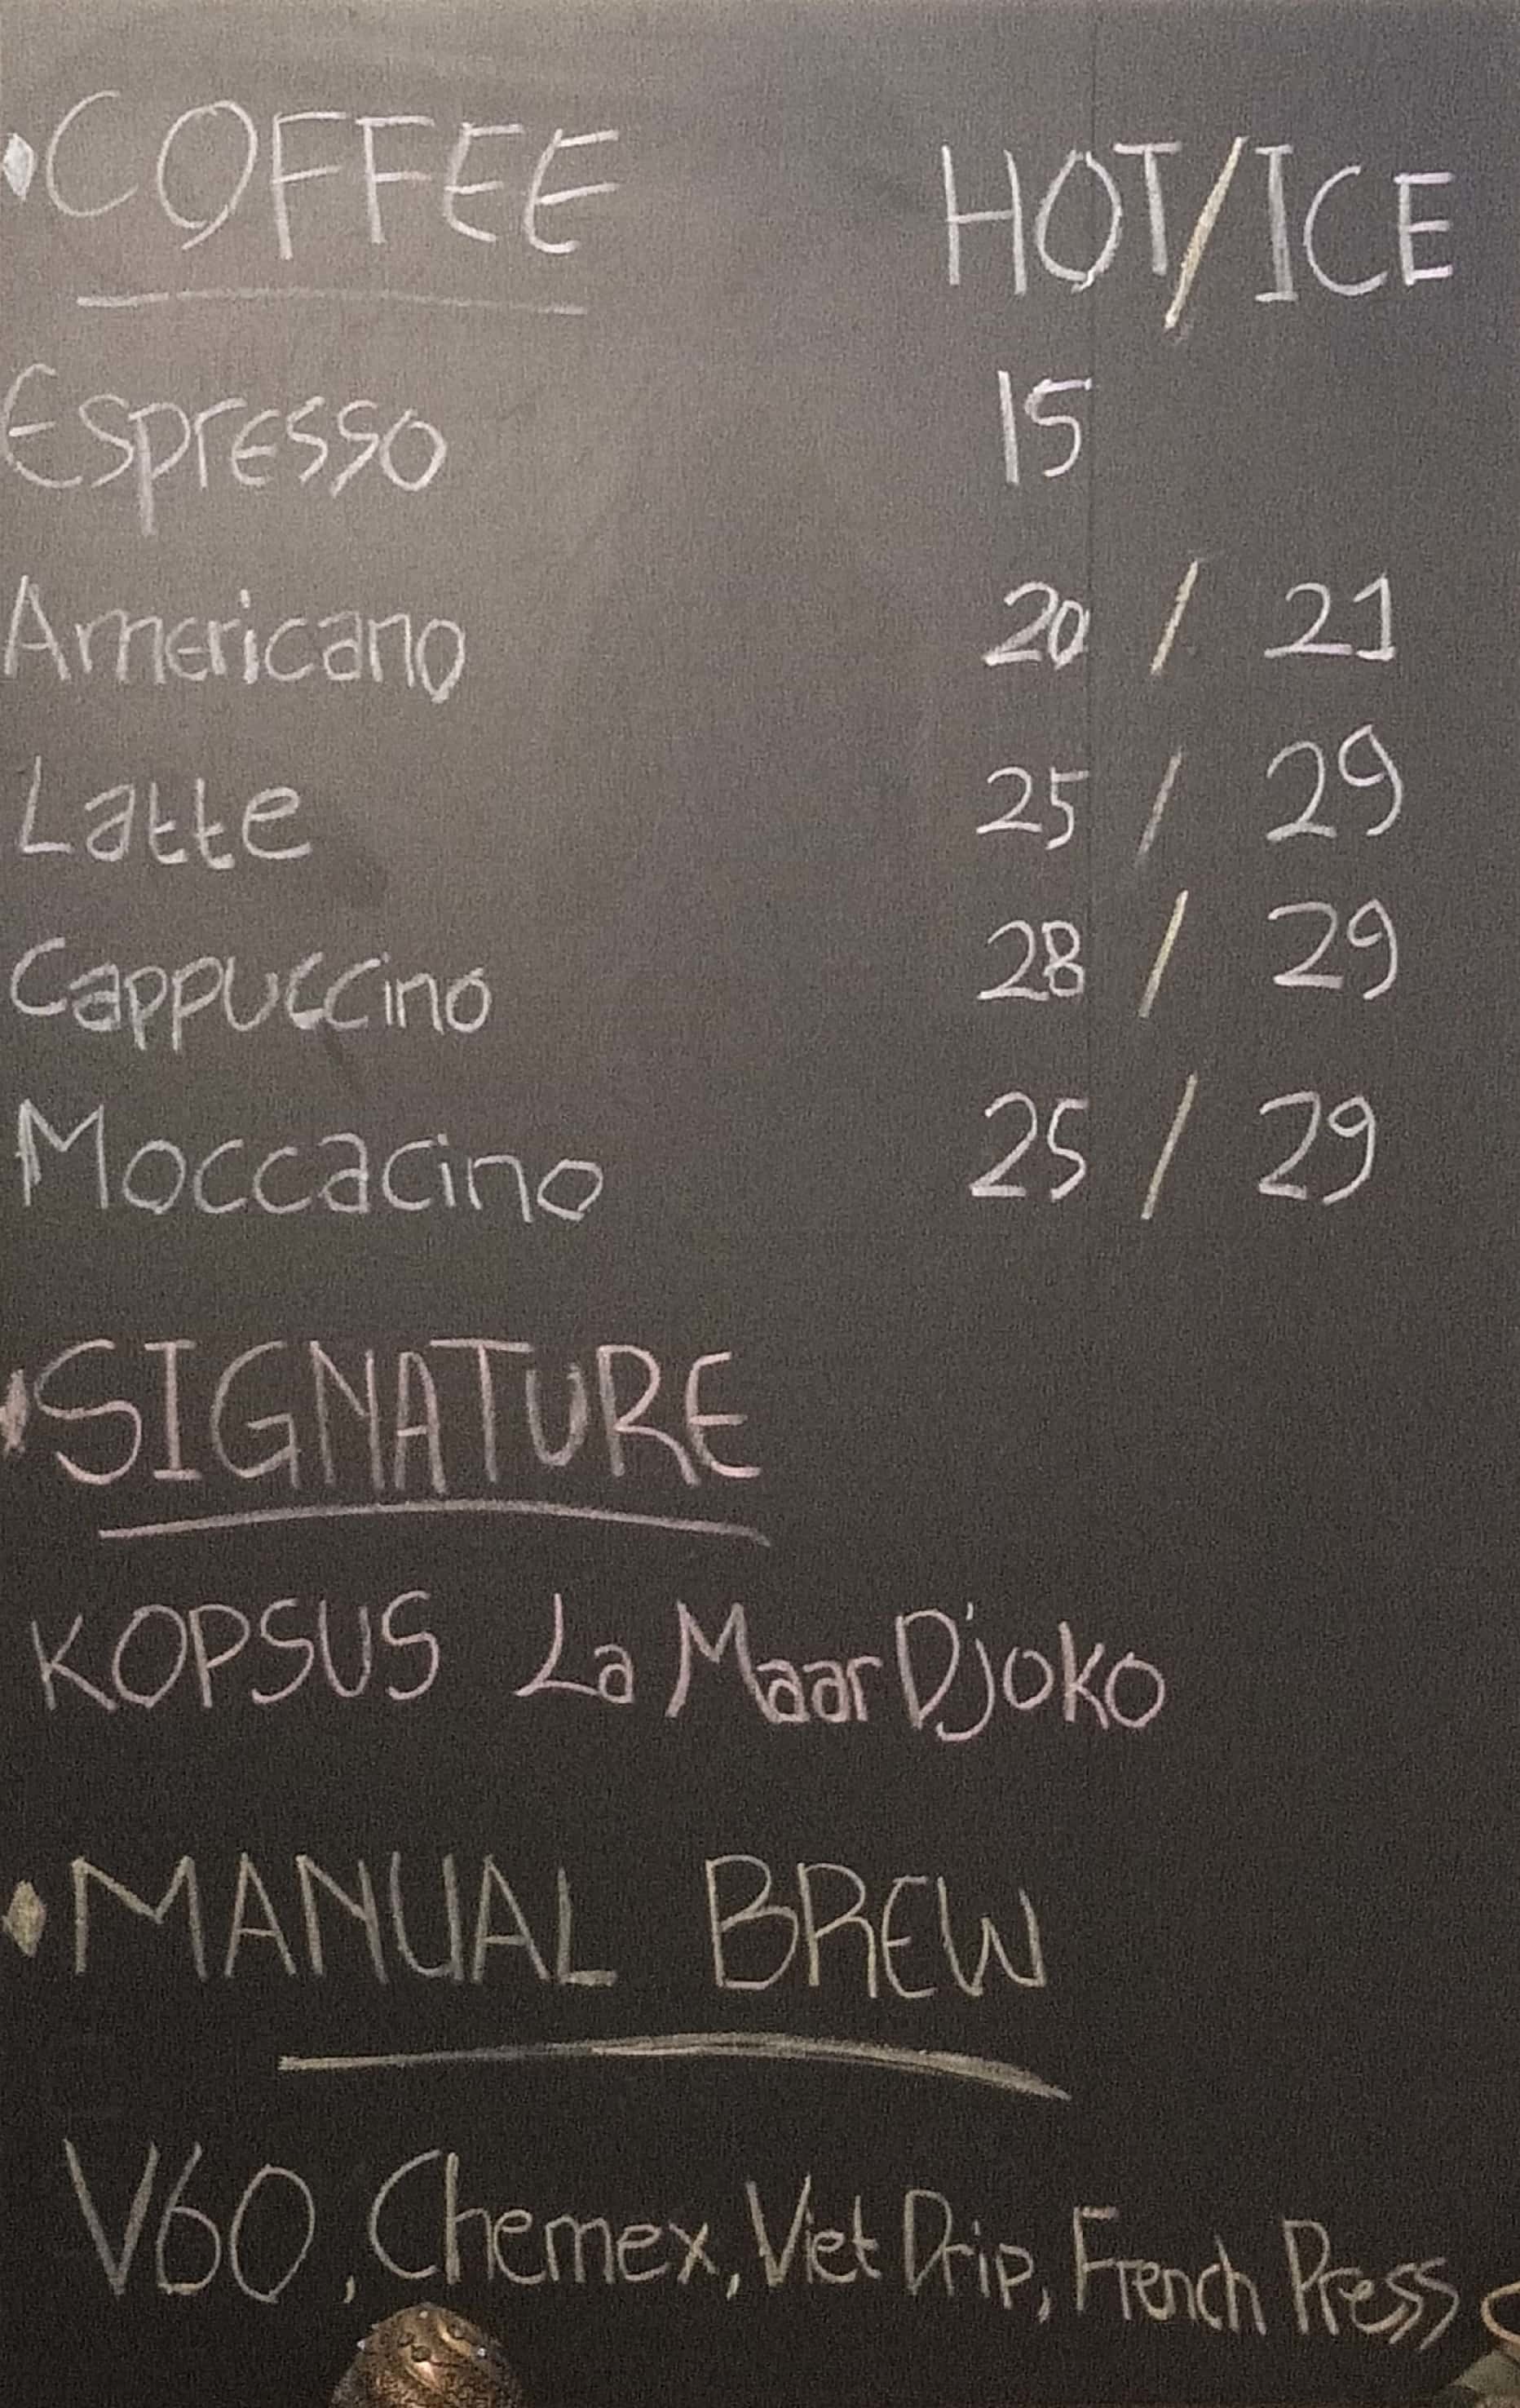 COFFEE HOT/ICE
Espresso 15
Americano 20 / 21
Latte 25 / 29
Cappuccino 28 / 29
Moccacino 25 / 29
SIGNATURE
KOPSUS La Maar Djoko
MANUAL BREW
V60, Chemex, Viet Drip, French Press